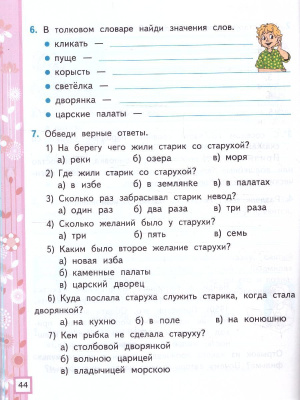 6. В толковом словаре найди значения слов.
• кликать —
• пуще —
• корысть —
• светёлка —
• дворянка —
• царские палаты —
7. Обведи верные ответы.
1) На берегу чего жили старик со старухой?
а) реки б) озера в) моря
2) Где жили старик со старухой?
а) в избе б) в землянке в) в палатах
3) Сколько раз забрасывал старик невод?
а) один раз б) два раза в) три раза
4) Сколько желаний было у старухи?
а) три б) пять в) семь
5) Каким было второе желание старухи?
а) новая изба
б) каменные палаты
в) царский дворец
6) Куда послала старуха служить старика, когда стала
дворянкой?
а) на кухню б) в поле в) на конюшню
7) Кем рыбка не сделала старуху?
а) столбовой дворянкой
б) вольною царицей
в) владычицей морскою
44